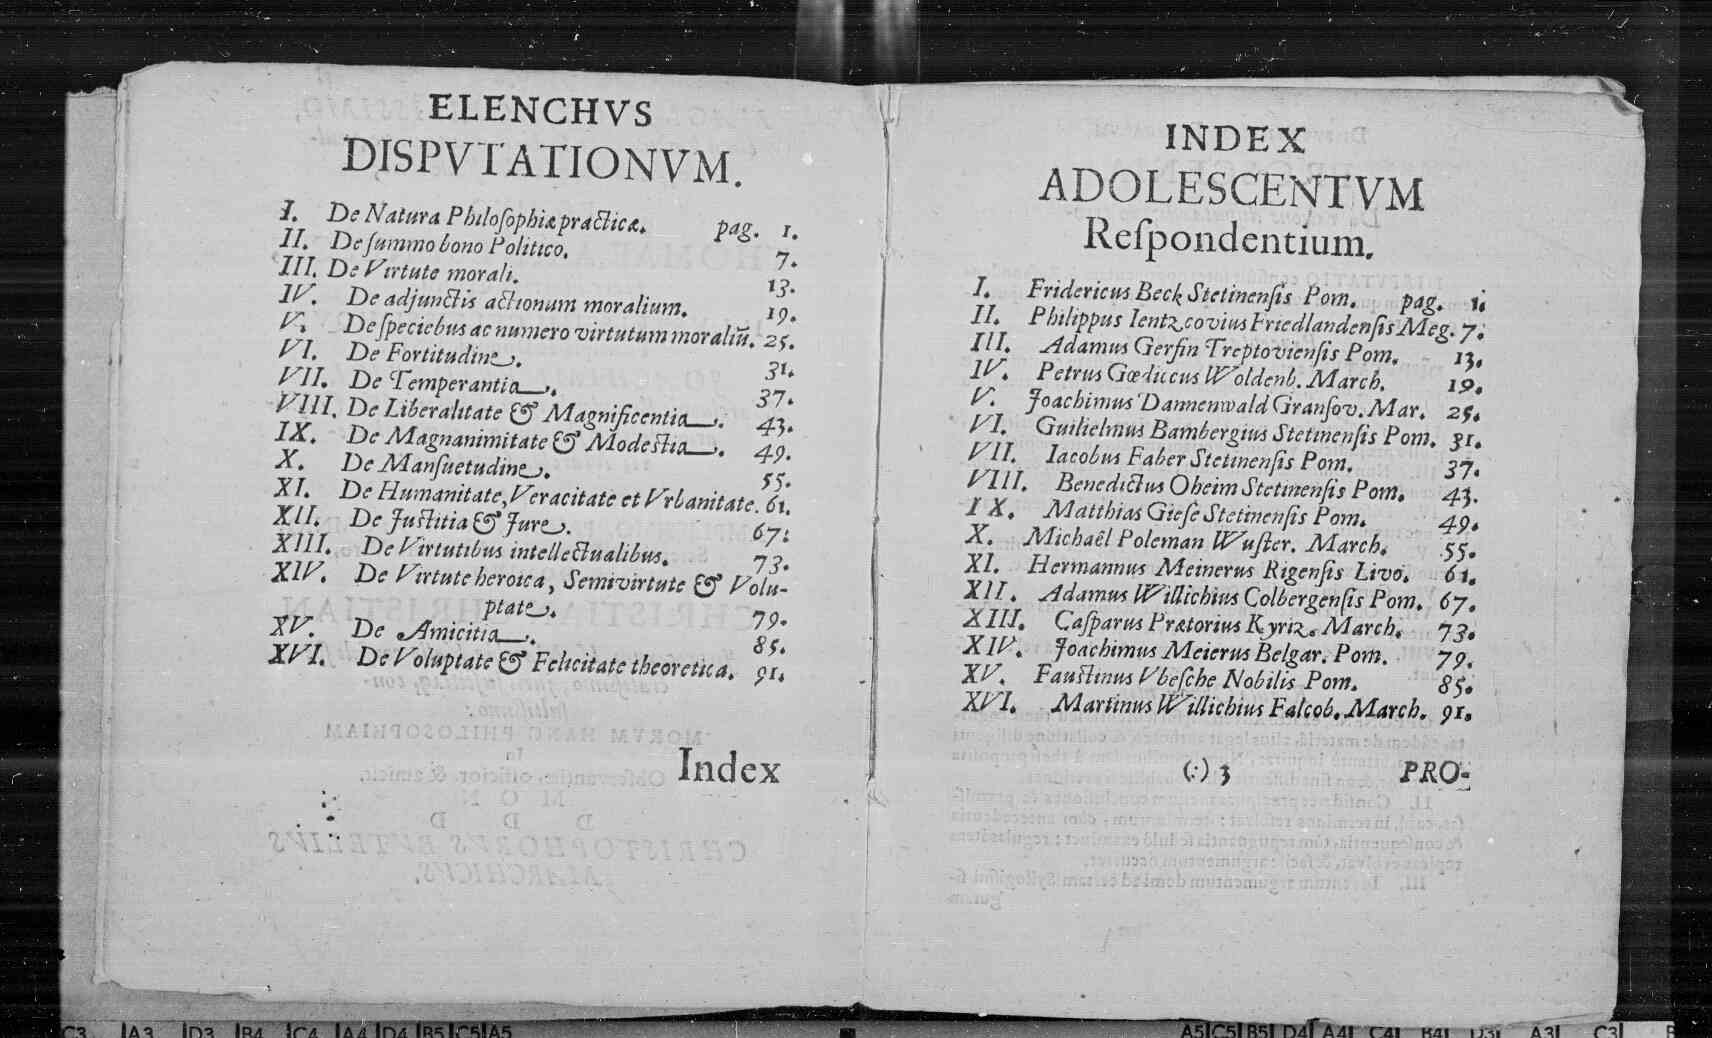 ELENCHVS
DISPVTATIONVM.
I. De Natura Philoſophiæ practicæ. pag. 1.
II. De ſummo bono Politico. 7.
III. De Virtute morali. 13.
IV. De adjunctis actionum moralium. 19.
V. De ſpeciebus ac numero virtutum moraliū. 25.
VI. De Fortitudine. 31.
VII. De Temperantia. 37.
VIII. De Liberalitate & Magnificentia. 43.
IX. De Magnanimitate & Modestia. 49.
X. De Manſuetudine. 55.
XI. De Humanitate, Veracitate et Vrbanitate. 61.
XII. De Justitia & Jure. 67:
XIII. De Virtutibus intellectualibus. 73.
XIV. De Virtute heroica, Semivirtute & Volu-
ptate. 79.
XV. De Amicitia. 85.
XVI. De Voluptate & Felicitate theoretica. 91.
Index
INDEX
ADOLESCENTVM
Reſpondentium.
I. Fridericus Beck Stetinenſis Pom. pag. 1.
II. Philippus Ientzcovius Friedlandenſis Meg. 7.
III. Adamus Gerſin Treptovienſis Pom. 13.
IV. Petrus Gœdiccus Woldenb. March. 19.
V. Joachimus Dannenwald Granſov. Mar. 25.
VI. Guilielmus Bambergius Stetinenſis Pom. 31.
VII. Iacobus Faber Stetinenſis Pom. 37.
VIII. Benedictus Oheim Stetinenſis Pom. 43.
IX. Matthias Gieſe Stetinenſis Pom. 49.
X. Michaël Poleman Wuſter. March. 55.
XI. Hermannus Meinerus Rigenſis Livo. 61.
XII. Adamus Willichius Colbergenſis Pom. 67.
XIII. Caſparus Prætorius Kyriz. March. 73.
XIV. Joachimus Meierus Belgar. Pom. 79.
XV. Faustinus Vbeſche Nobilis Pom. 85.
XVI. Martinus Willichius Falcob. March. 91.
(:) 3 PRO-
C3 A3 D3 B4 C4 A4 D4 B5 C5 A5
A5 C5 B5 D4 A4 C4 B4 D3 A3 C3